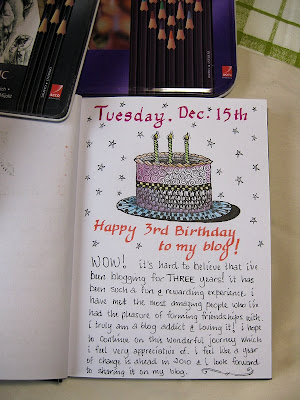 Tuesday, Dec. 15th
Happy 3rd Birthday
to my blog!
WOW! it's hard to believe that i've
been blogging for THREE years! it has
been such a fun & rewarding experience. i
have met the most amazing people who i've
had the pleasure of forming friendships with.
i truly am a blog addict & loving it! i hope
to continue on this wonderful journey which
i feel very appreciative of. i feel like a year
of change is ahead in 2010 & i look forward
to sharing it on my blog.